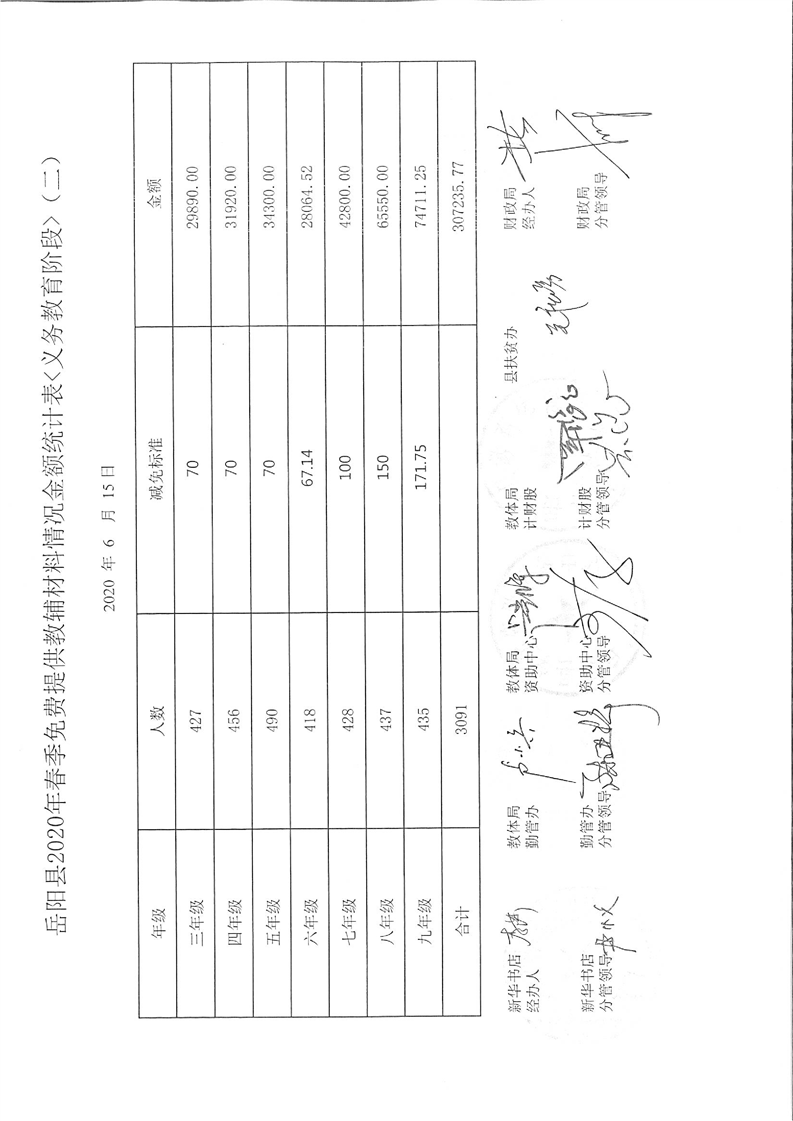 岳阳县2020年春季免费提供教辅材料情况金额统计表<义务教育阶段>（二）
2020 年 6 月 15日
年级 人数 减免标准 金额
三年级 427 70 29890.00
四年级 456 70 31920.00
五年级 490 70 34300.00
六年级 418 67.14 28064.52
七年级 428 100 42800.00
八年级 437 150 65550.00
九年级 435 171.75 74711.25
合计 3091 307235.77
新华书店 教体局 教体局 教体局 县扶贫办 财政局
经办人 勤管办 资助中心 计财股 经办人
新华书店 勤管办 资助中心 计财股 财政局
分管领导 分管领导 分管领导 分管领导 分管领导